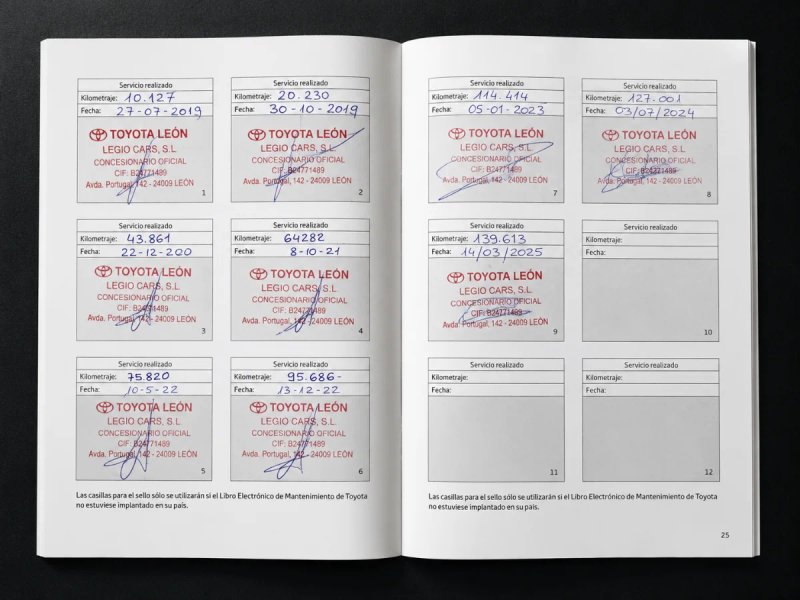 Servicio realizado
Kilometraje: 10.127
Fecha: 27-07-2019
TOYOTA LEÓN
LEGIO CARS, S.L.
CONCESIONARIO OFICIAL
CIF: B24771489
Avda. Portugal, 142 - 24009 LEÓN
1
Servicio realizado
Kilometraje: 20.230
Fecha: 30-10-2019
TOYOTA LEÓN
LEGIO CARS, S.L.
CONCESIONARIO OFICIAL
CIF: B24771489
Avda. Portugal, 142 - 24009 LEÓN
2
Servicio realizado
Kilometraje: 43.861
Fecha: 22-12-200
TOYOTA LEÓN
LEGIO CARS, S.L.
CONCESIONARIO OFICIAL
CIF: B24771489
Avda. Portugal, 142 - 24009 LEÓN
3
Servicio realizado
Kilometraje: 64282
Fecha: 8-10-21
TOYOTA LEÓN
LEGIO CARS, S.L.
CONCESIONARIO OFICIAL
CIF: B24771489
Avda. Portugal, 142 - 24009 LEÓN
4
Servicio realizado
Kilometraje: 75.820
Fecha: 10-5-22
TOYOTA LEÓN
LEGIO CARS, S.L.
CONCESIONARIO OFICIAL
CIF: B24771489
Avda. Portugal, 142 - 24009 LEÓN
5
Servicio realizado
Kilometraje: 95.686-
Fecha: 13-12-22
TOYOTA LEÓN
LEGIO CARS, S.L.
CONCESIONARIO OFICIAL
CIF: B24771489
Avda. Portugal, 142 - 24009 LEÓN
6
Las casillas para el sello sólo se utilizarán si el Libro Electrónico de Mantenimiento de Toyota
no estuviese implantado en su país.
Servicio realizado
Kilometraje: 114.414
Fecha: 05-01-2023
TOYOTA LEÓN
LEGIO CARS, S.L.
CONCESIONARIO OFICIAL
CIF: B24771489
Avda. Portugal, 142 - 24009 LEÓN
7
Servicio realizado
Kilometraje: 127.001
Fecha: 03/07/2024
TOYOTA LEÓN
LEGIO CARS, S.L.
CONCESIONARIO OFICIAL
CIF: B24771489
Avda. Portugal, 142 - 24009 LEÓN
8
Servicio realizado
Kilometraje: 139.613
Fecha: 14/03/2025
TOYOTA LEÓN
LEGIO CARS, S.L.
CONCESIONARIO OFICIAL
CIF: B24771489
Avda. Portugal, 142 - 24009 LEÓN
9
Servicio realizado
Kilometraje:
Fecha:
10
Servicio realizado
Kilometraje:
Fecha:
11
Servicio realizado
Kilometraje:
Fecha:
12
Las casillas para el sello sólo se utilizarán si el Libro Electrónico de Mantenimiento de Toyota
no estuviese implantado en su país.
25